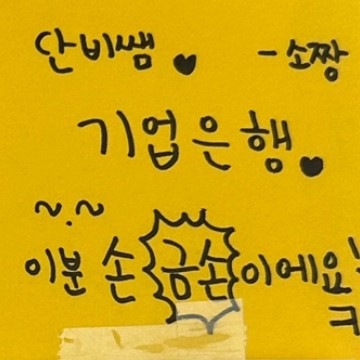 단비쌤♥ -소짱
기업은행♥
~.~
이분 손 금손이에요!
ㅋ